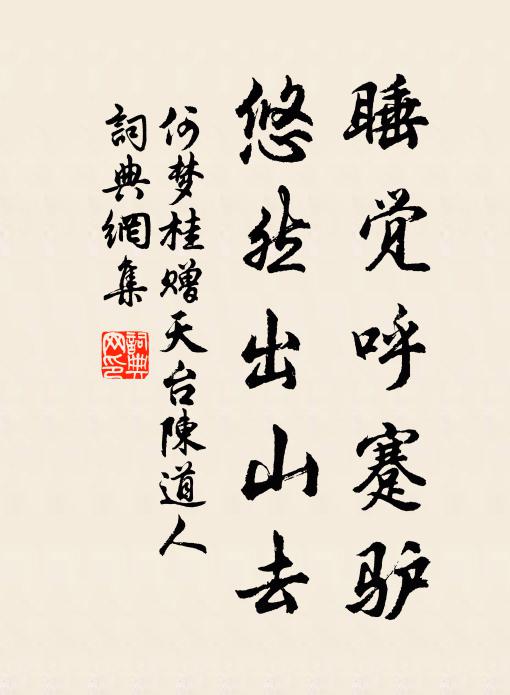 睡觉呼蹇驴
悠然出山去
何梦桂赠天台陳道人
詞典網集
詞典网印